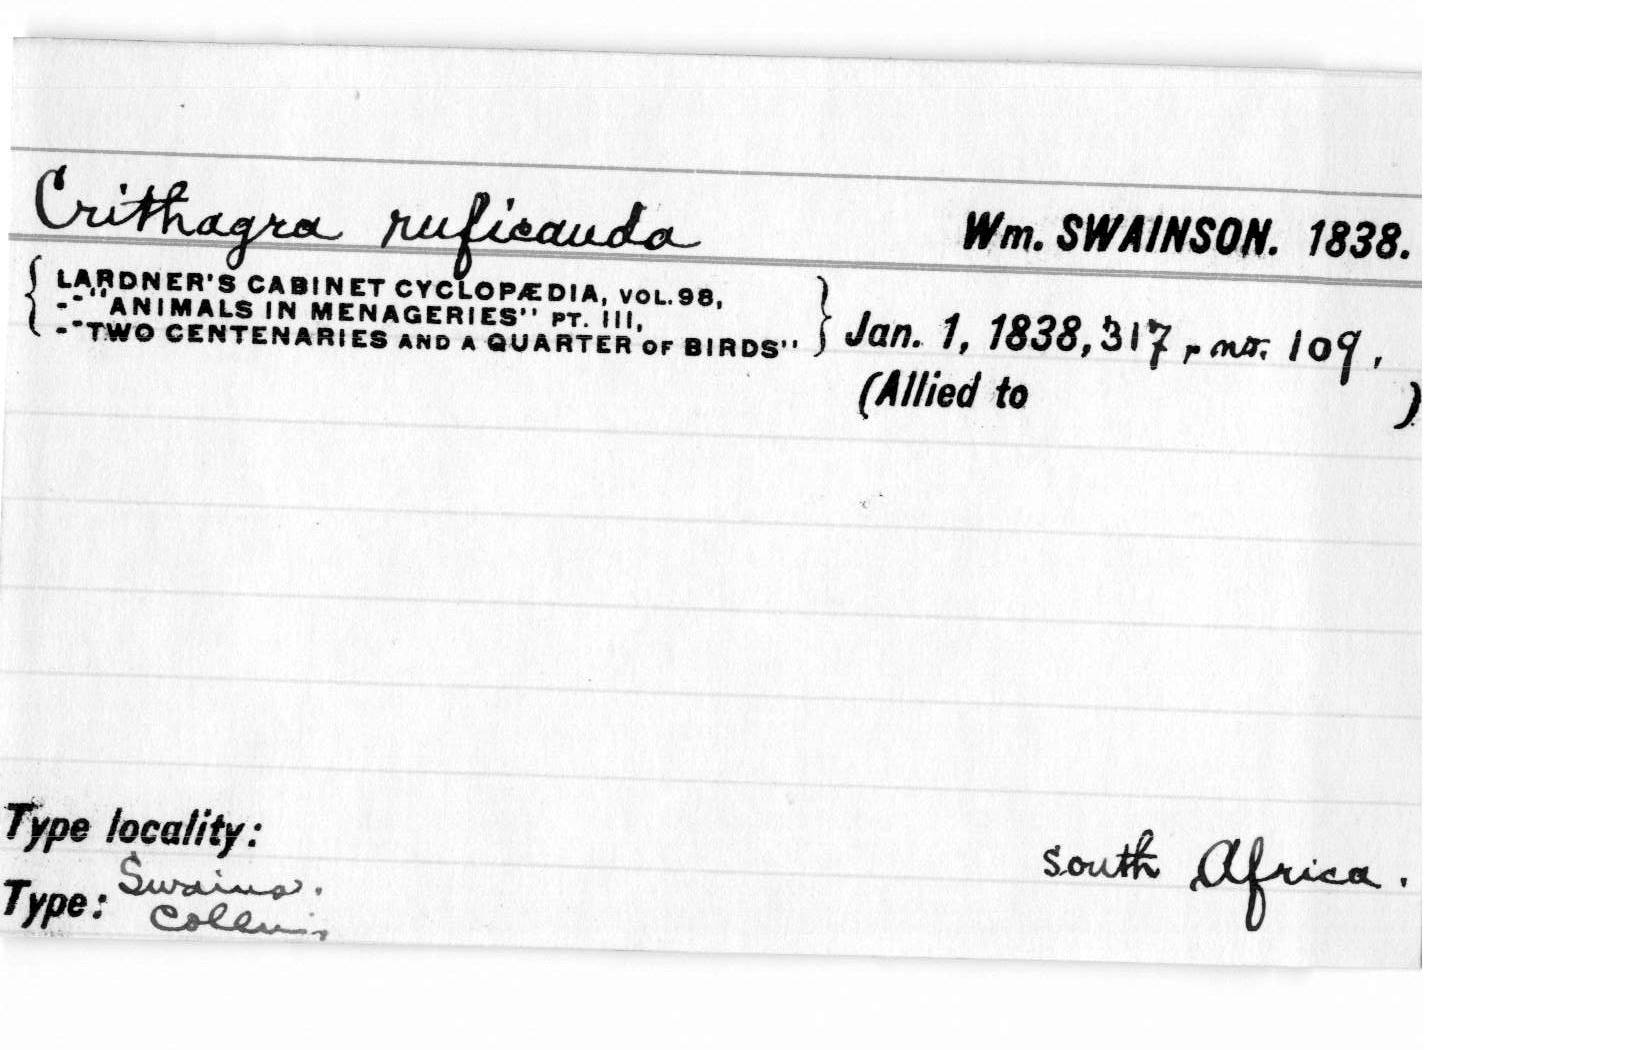 Crithagra ruficauda Wm. SWAINSON. 1838.
LARDNER'S CABINET CYCLOPÆDIA, VOL. 98,
-"ANIMALS IN MENAGERIES" PT. III,
-"TWO CENTENARIES AND A QUARTER OF BIRDS"
Jan. 1, 1838, 317, no. 109,
(Allied to )
Type locality: South Africa.
Type: Swains.